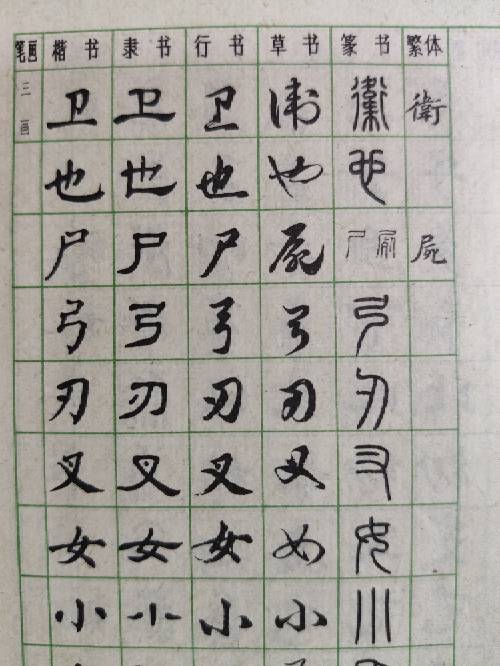 笔画 楷书 隶书 行书 草书 篆书 繁体
三画 卫 卫 卫 衛 衛 衛
也 也 也 也 也
尸 尸 尸 屍 尸 屍 屍
弓 弓 弓 弓 弓
刃 刃 刃 刃 刃
叉 叉 叉 叉 叉
女 女 女 女 女
小 小 小 小 小